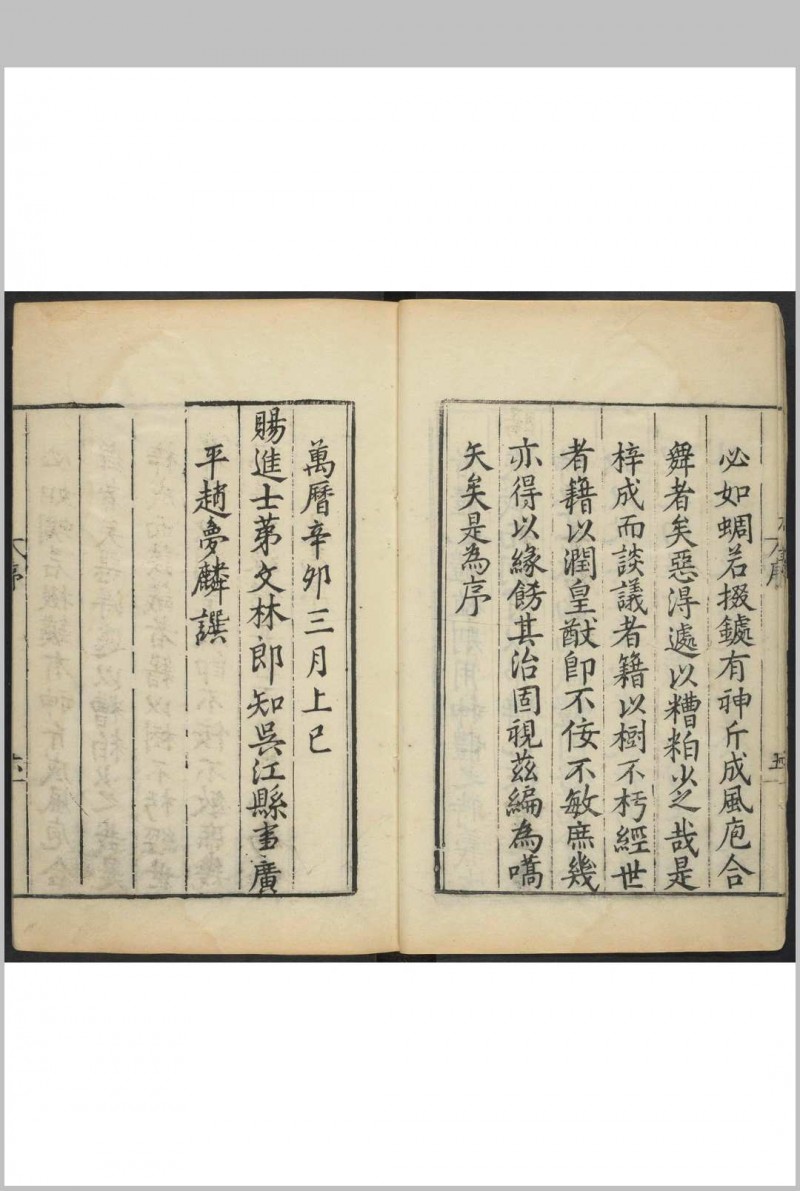 必如蜩若掇鐻有神斤成風庖合
舞者矣惡得遽以糟粕少之哉是
梓成而談議者籍以樹不朽經世
者籍以潤皇猷卽不佞不敏庶幾
亦得以緣餝其治固視茲編為嚆
矢矣是為序
五
萬曆辛夘三月上巳
賜進士第文林郎知吳江縣事廣
平趙夢麟譔